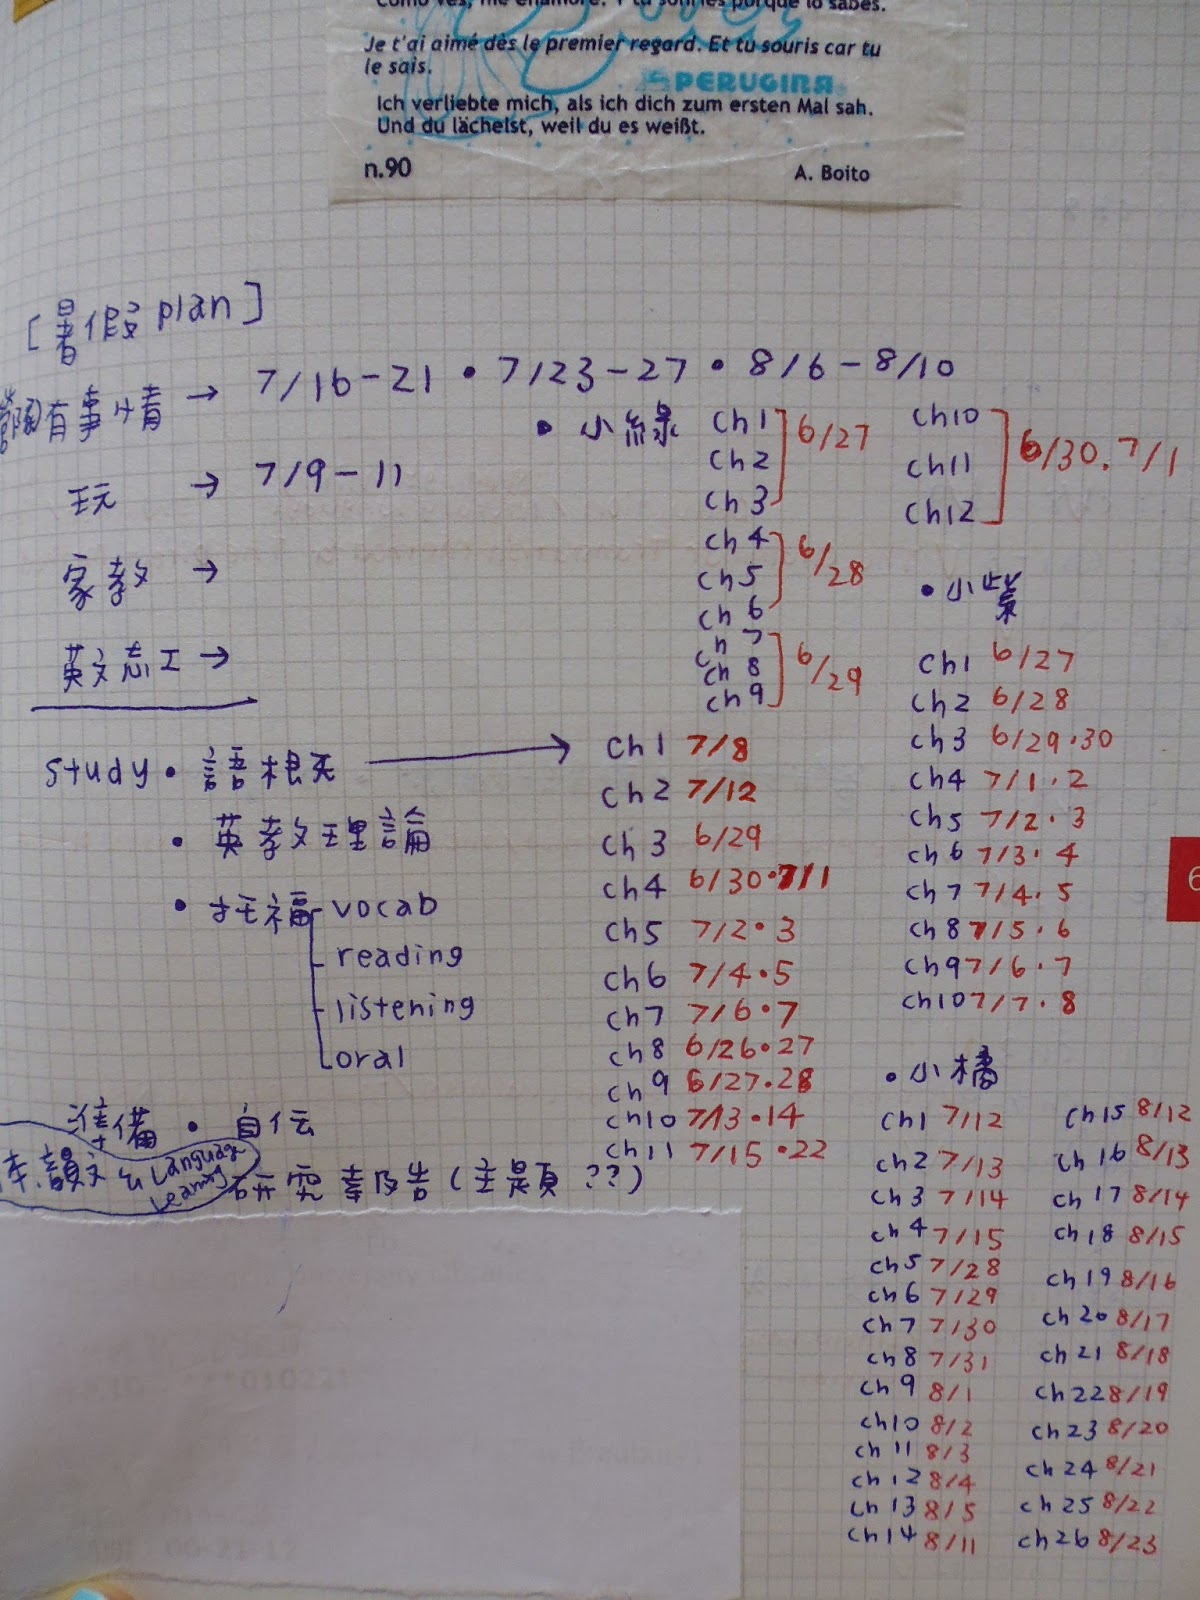 Como ves, me enamoré. Y tú sonríes porque lo sabes.
Je t'ai aimé dès le premier regard. Et tu souris car tu
le sais.
PERUGINA
Ich verliebte mich, als ich dich zum ersten Mal sah.
Und du lächelst, weil du es weißt.
n.90
A. Boito
[暑假 plan]
有事情 → 7/16-21 • 7/23-27 • 8/6-8/10
玩 → 7/9-11
家教 →
英文志工 →
study • 語概 →
• 英教理論
• 托福 vocab
reading
listening
oral
準備 • 自传
Language Learning
研究報告 (主題??)
• 小綠
ch1
ch2
ch3
6/27
ch4
ch5
ch6
6/28
ch7
ch8
ch9
6/29
ch10
ch11
ch12
6/30.7/1
ch1 7/8
ch2 7/12
ch3 6/29
ch4 6/30•7/1
ch5 7/2•3
ch6 7/4•5
ch7 7/6•7
ch8 6/26•27
ch9 6/27.28
ch10 7/13•14
ch11 7/15•22
• 小紫
ch1 6/27
ch2 6/28
ch3 6/29•30
ch4 7/1•2
ch5 7/2•3
ch6 7/3•4
ch7 7/4•5
ch8 7/5•6
ch9 7/6•7
ch10 7/7•8
• 小橘
ch1 7/12
ch2 7/13
ch3 7/14
ch4 7/15
ch5 7/28
ch6 7/29
ch7 7/30
ch8 7/31
ch9 8/1
ch10 8/2
ch11 8/3
ch12 8/4
ch13 8/5
ch14 8/11
ch15 8/12
ch16 8/13
ch17 8/14
ch18 8/15
ch19 8/16
ch20 8/17
ch21 8/18
ch22 8/19
ch23 8/20
ch24 8/21
ch25 8/22
ch26 8/23
6